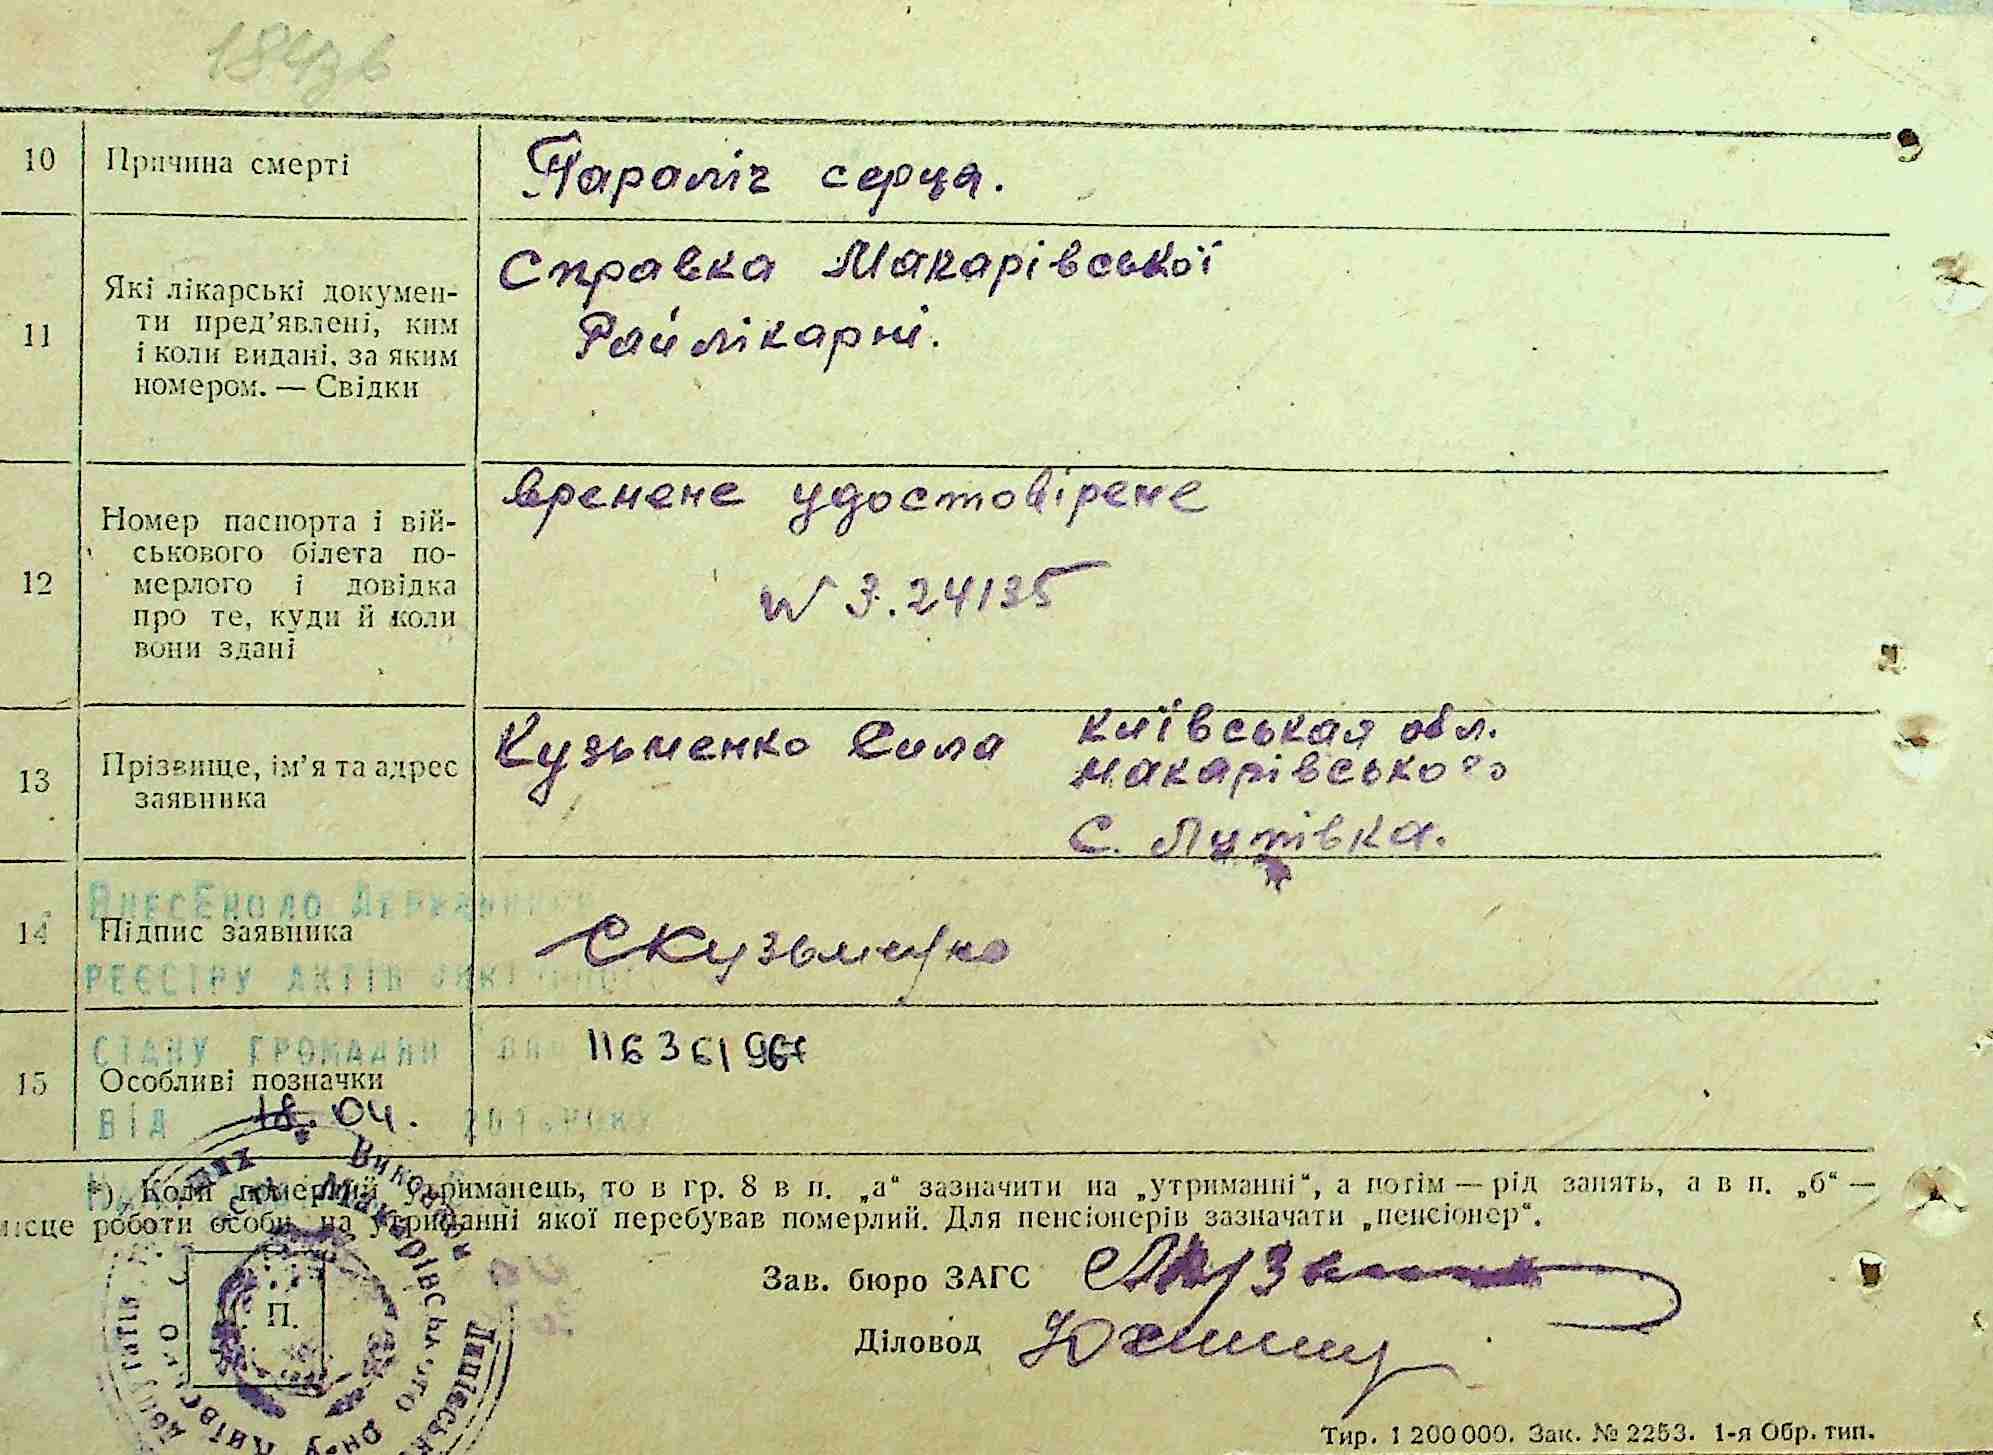 184зв
10
Причина смерті
Параліч серця.
11
Які лікарські докумен-
ти пред’явлені, ким
і коли видані, за яким
номером. — Свідки
Справка Макарівської
Райлікарні.
12
Номер паспорта і вій-
ськового білета по-
мерлого і довідка
про те, куди й коли
вони здані
времене удостовірене
№ 3.24135
13
Прізвище, ім’я та адрес
заявника
Кузьменко Сила
Київськая обл.
Макарівського
С. Липівка.
14
Підпис заявника
СКузьменко
Внесено до Державного
реєстру актів
стану громадян
15
Особливі позначки
11636196
від 18.04.
*) Коли померлий утриманець, то в гр. 8 в п. „а“ зазначити на „утриманні“, а потім — рід занять, а в п. „б“ —
місце роботи особи, на утриманні якої перебував померлий. Для пенсіонерів зазначати „пенсіонер“.
П.
Зав. бюро ЗАГС
Діловод
Тир. 1 200 000. Зак. № 2253. 1-я Обр. тип.